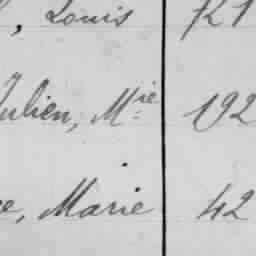 , Louis 721
Julien, Mie 192
e, Marie 42